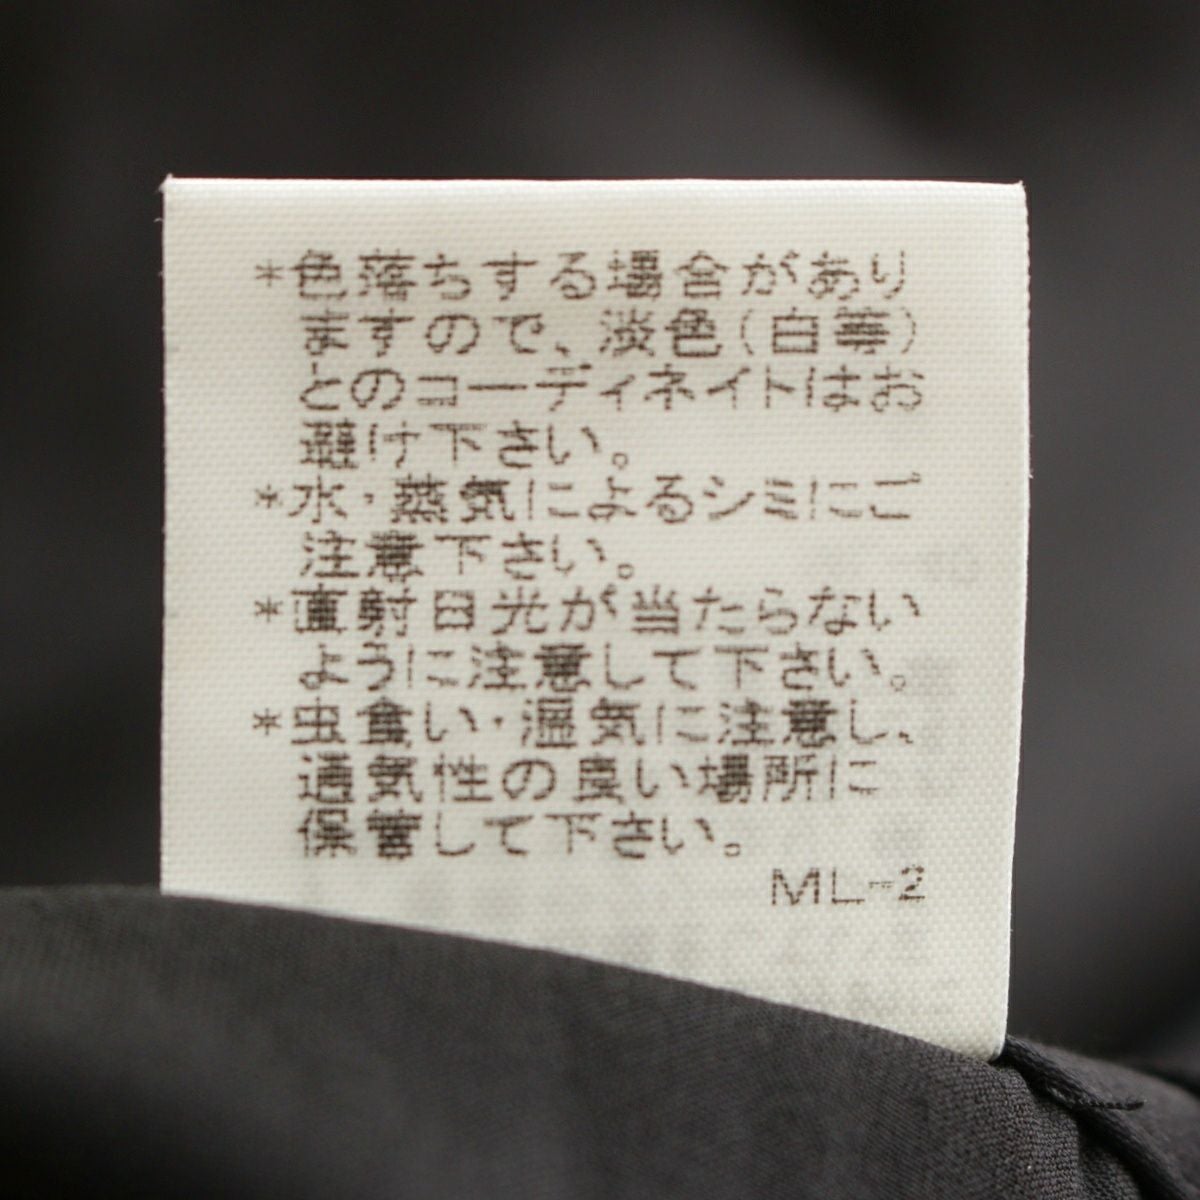 *色落ちする場合があり
ますので、淡色(白等)
とのコーディネイトはお
避け下さい。
*水・蒸気によるシミにご
注意下さい。
*直射日光が当たらない
ように注意して下さい。
*虫食い・湿気に注意し、
通気性の良い場所に
保管して下さい。
ML-2